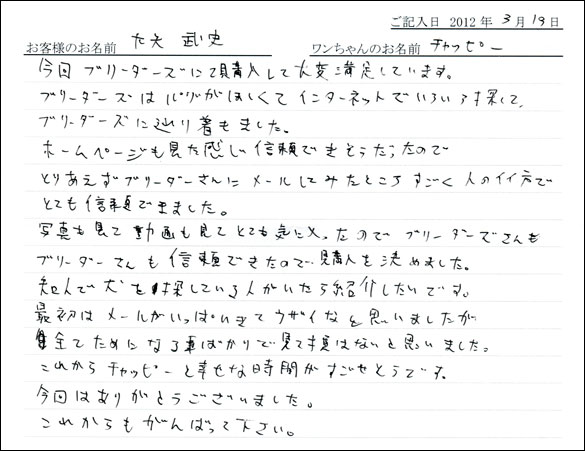 ご記入日 2012年 3月 19日
お客様のお名前 武史 ワンちゃんのお名前 チャッピー
今回 ブリーダーズにて購入して大変満足しています。
ブリーダーズは パグがほしくて インターネットでいろいろ探して、
ブリーダーズに辿り着きました。
ホームページも見た感じ信頼できそうだったので
とりあえずブリーダーさんに メールしてみたところすごく 人のイイ方で
とても信頼できました。
写真も見て 動画も見て とても気に入ったので ブリーダーズさんも
ブリーダーさんも 信頼できたので 購入を決めました。
知人で犬を探している人がいたら紹介したいです。
最初はメールがいっぱいきてウザイなと思いましたが
全てためになる事ばかりで見て損はないと思いました。
これから チャッピーと幸せな時間がすごせそうです。
今回はありがとうございました。
これからもがんばって下さい。